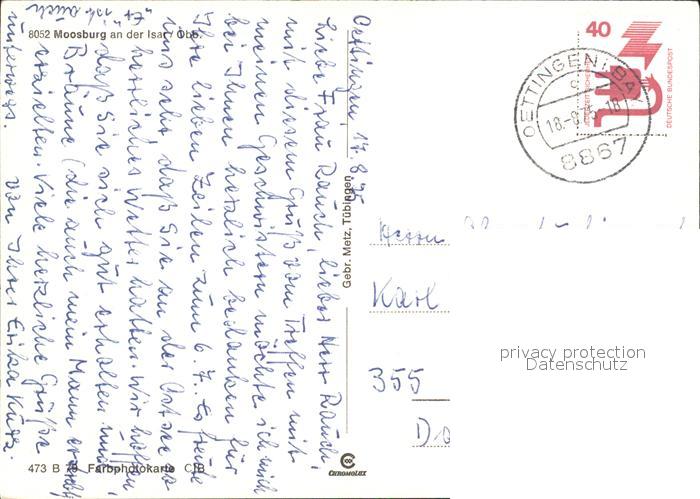 8052 Moosburg an der Isar / Obb.
Oettingen, 17.8.75
Liebe Frau Rauch, lieber Herr Rauch,
mit diesem Gruß vom Treffen mit
meinen Geschwistern möchte ich mich
bei Ihnen herzlich bedanken für
Ihre lieben Zeilen zum 6. 7. Es freute
uns sehr, daß Sie an der Ostsee so
herrliches Wetter hatten. Wir hoffen,
daß Sie sich gut erholten und
Bräune (die auch mein Mann
erzielten. Viele herzliche Grüße
unterwegs. von Ihrer Erika
"Er" ist auch
473 B 79 Farbphotokarte CIB
Gebr. Metz, Tübingen
CHROMOLUX
40
JEDERZEIT SICHERHEIT
DEUTSCHE BUNDESPOST
OETTINGEN i. BAY
18.-8.75-18
8867
Herrn
Karl
355
privacy protection
Datenschutz